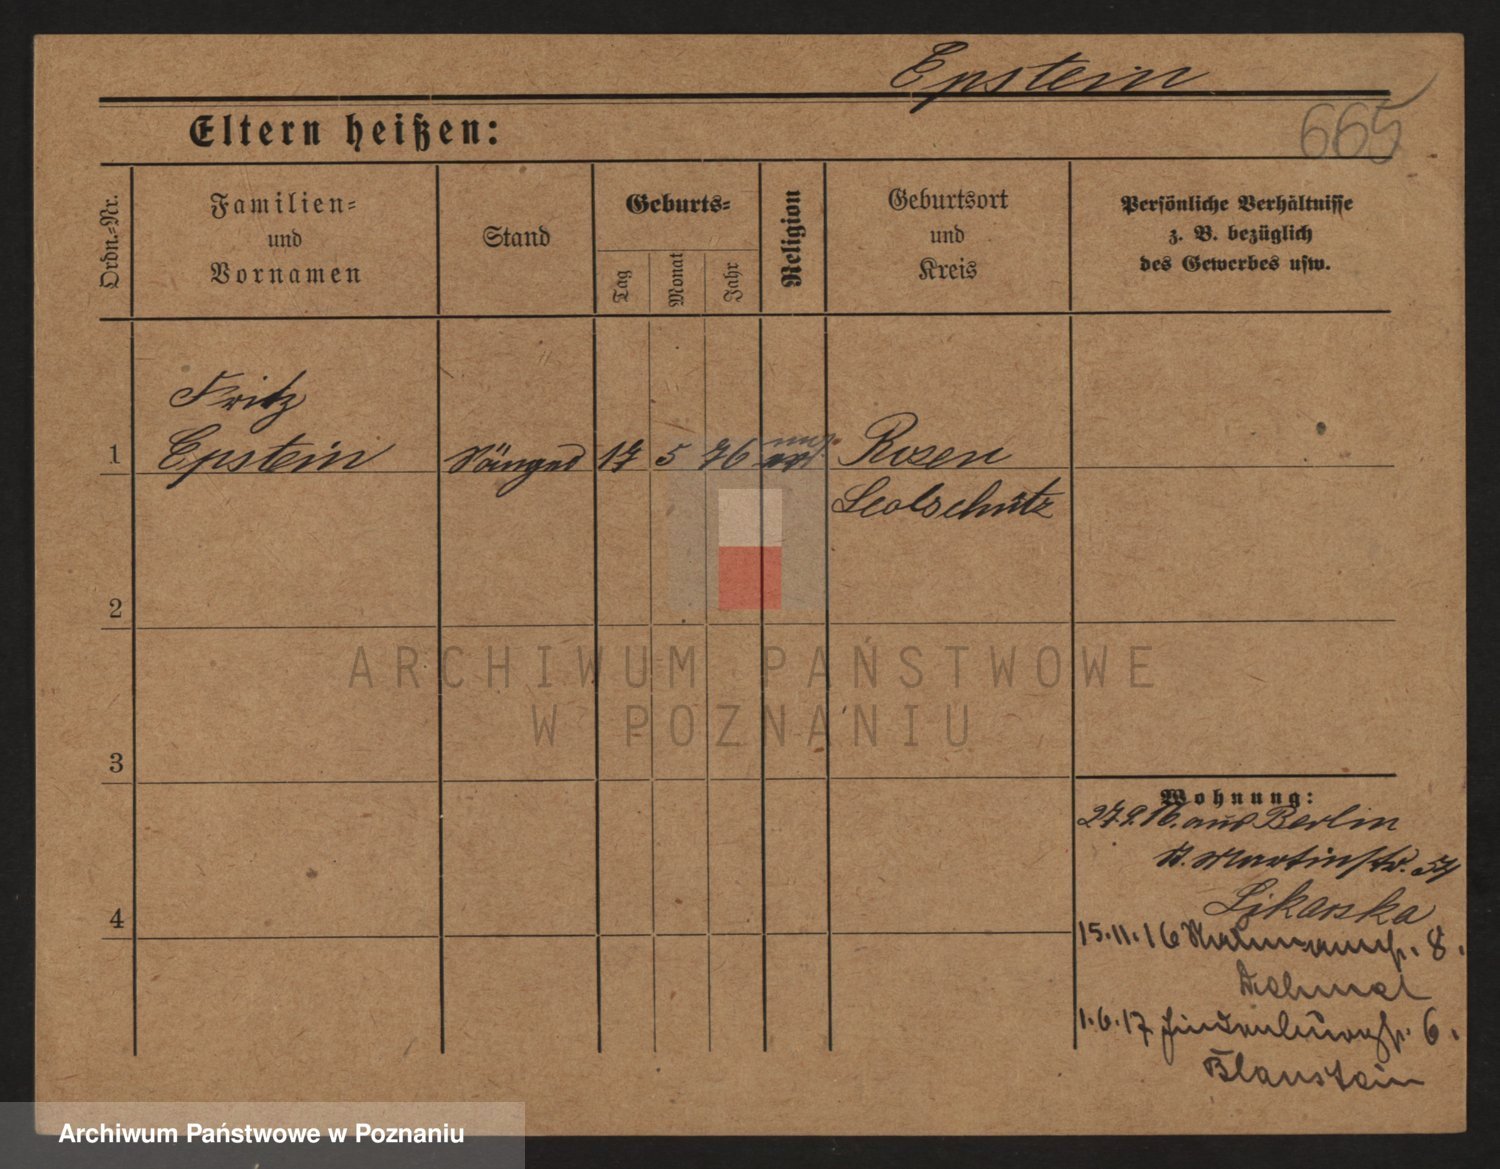 Epstein
665
Eltern heißen:
Ordn.-Nr.
Familien-
und
Vornamen
Stand
Geburts-
Tag
Monat
Jahr
Religion
Geburtsort
und
Kreis
Persönliche Verhältnisse
z. B. bezüglich
des Gewerbes usw.
Fritz
1 Epstein Sänger 17 5 76 Rosen
Leobschütz
2
3
4
Wohnung:
27.9.16. aus Berlin
St. Martinstr. 54
Sikorska
15.11.16 8.
1.6.17 6.
Blaustein
ARCHIWUM PAŃSTWOWE
W POZNANIU
Archiwum Państwowe w Poznaniu